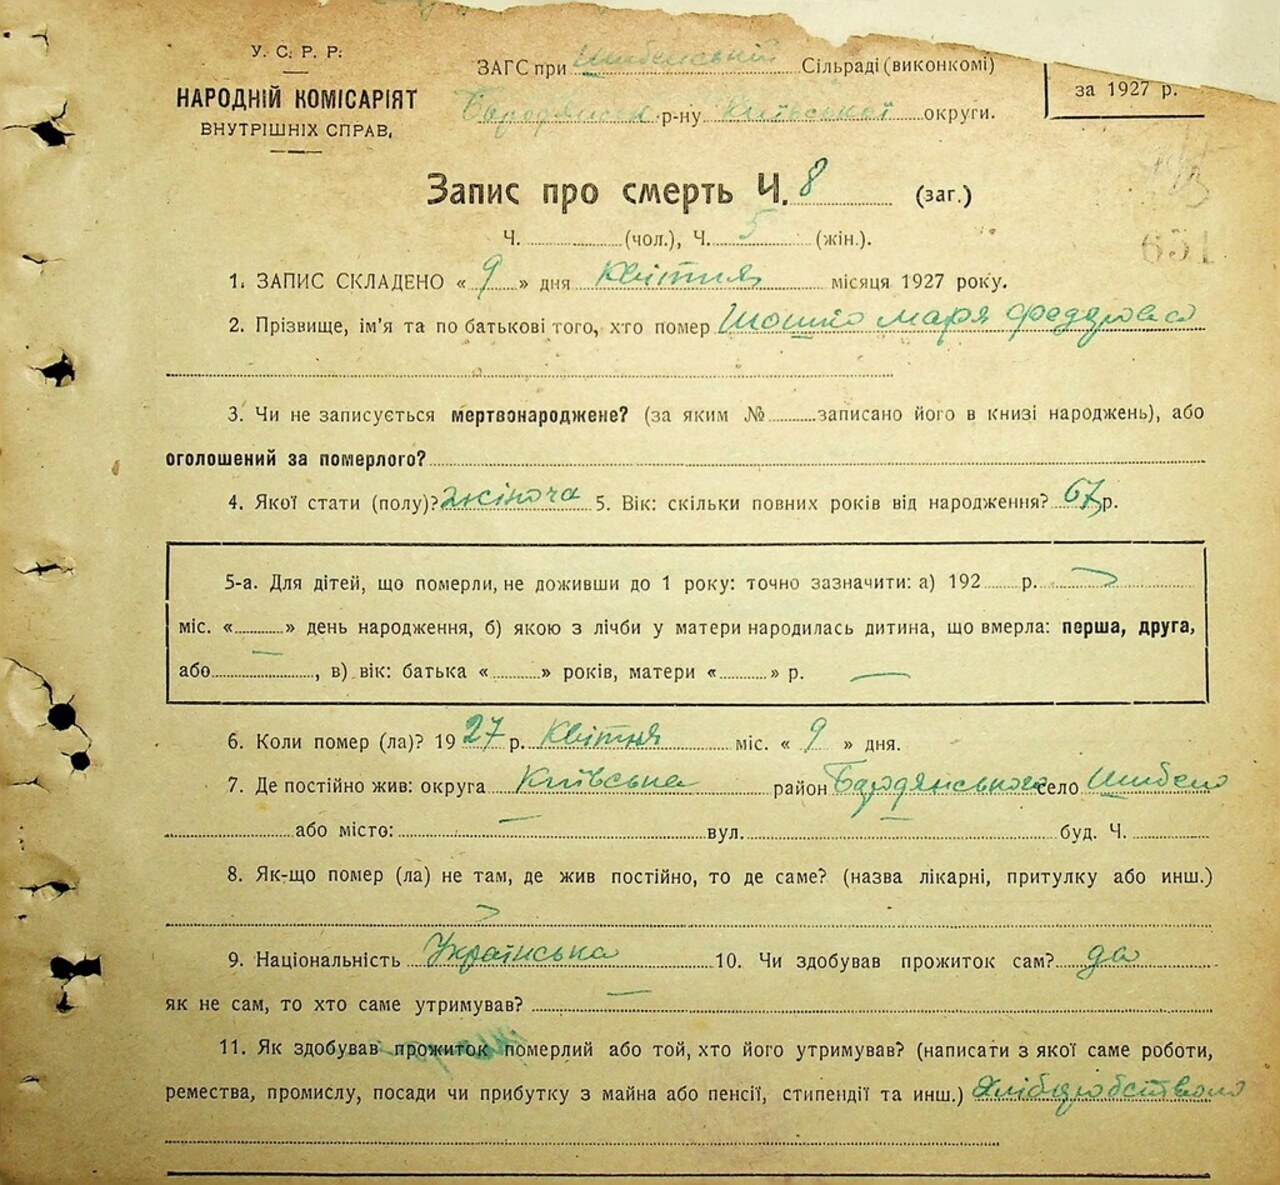 У. С. Р. Р.
НАРОДНІЙ КОМІСАРІЯТ
ВНУТРІШНІХ СПРАВ.
ЗАГС при Шибенській Сільраді (виконкомі)
р-ну Київської округи.
за 1927 р.
Запис про смерть Ч. 8 (заг.)
Ч. (чол.), Ч. 5 (жін.).
651
1. ЗАПИС СКЛАДЕНО « 9 » дня Квітня місяця 1927 року.
2. Прізвище, ім'я та по батькові того, хто помер Шошко Маря
3. Чи не записується мертвонароджене? (за яким № записано його в книзі народжень), або
оголошений за померлого?
4. Якої стати (полу)? жіноча 5. Вік: скільки повних років від народження? 67 р.
5-а. Для дітей, що померли, не доживши до 1 року: точно зазначити: а) 192 р.
міс. « » день народження, б) якою з лічби у матери народилась дитина, що вмерла: перша, друга,
або , в) вік: батька « » років, матери « » р.
6. Коли помер (ла)? 19 27 р. Квітня міс. « 9 » дня.
7. Де постійно жив: округа Київська район Бародянського село Шибено
або місто: вул. буд. Ч.
8. Як-що помер (ла) не там, де жив постійно, то де саме? (назва лікарні, притулку або инш.)
9. Національність Українська 10. Чи здобував прожиток сам? да
як не сам, то хто саме утримував?
11. Як здобував прожиток померлий або той, хто його утримував? (написати з якої саме роботи,
ремества, промислу, посади чи прибутку з майна або пенсії, стипендії та инш.) Хліборобством